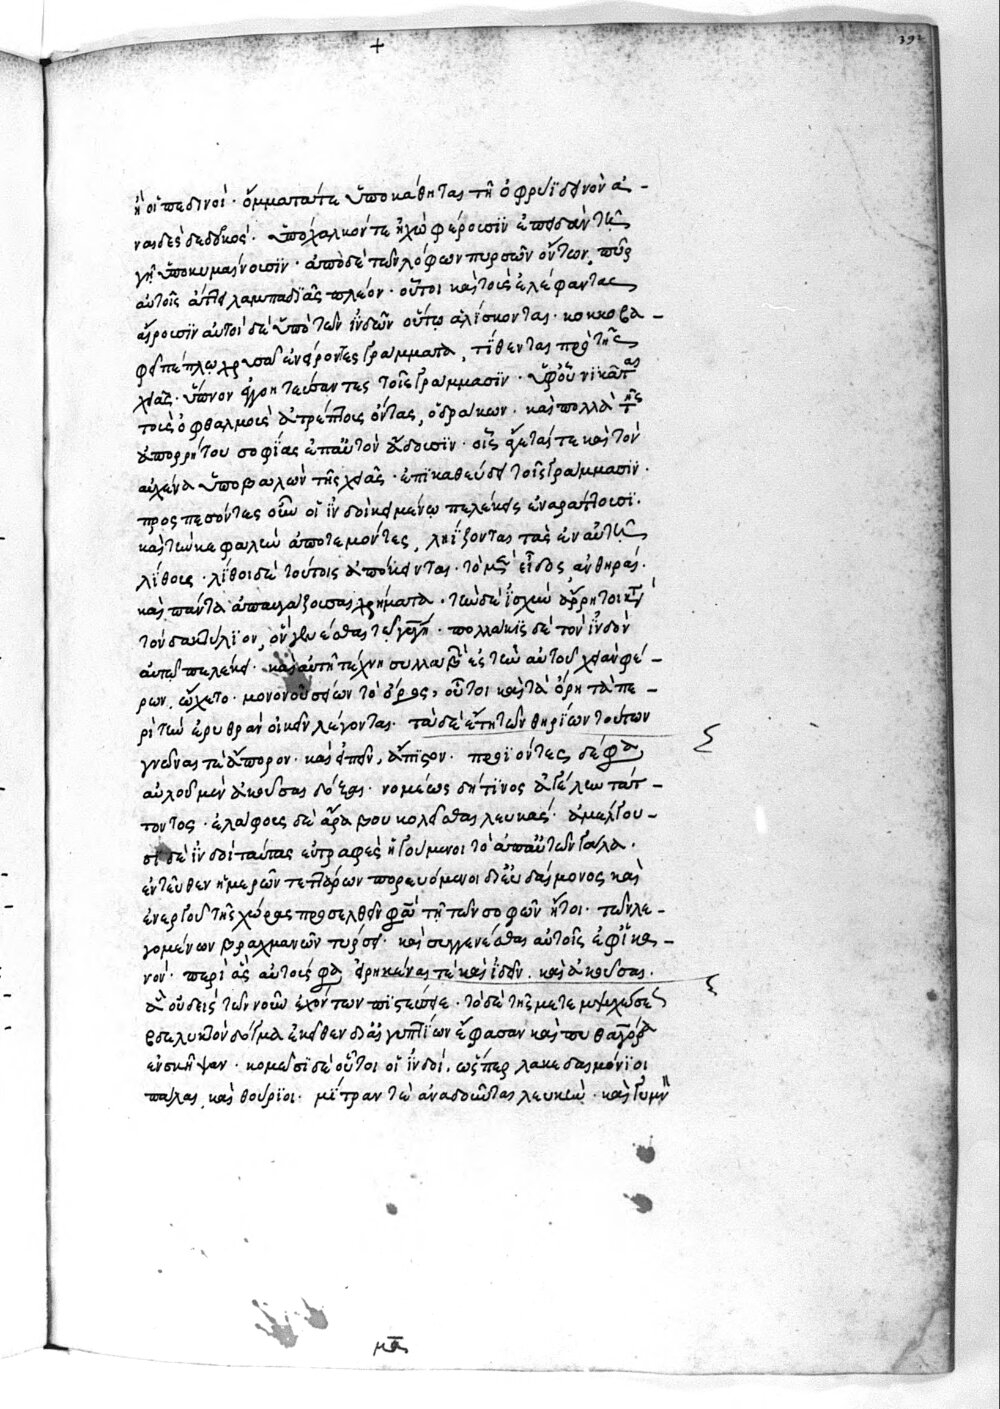 +
392
ἢ οἱ πεδινοί· ὄμματά τε ὑποκάθηται τῆ ὀφρύϊ δεινὸν ἀ-
ναιδὲς δεδορκός· ὑπόχαλκόν τε ἠχὼ φέρουσιν ἐπειδὰν τὴν
γῆν ὑποκυμαίνουσιν· ἀπὸ δὲ τῶν λόφων πυρσῶν ὄντων, πῦρ
αὐτοῖς ἅπτει λαμπαδίας πλέον· οὗτοι καὶ τοὺς ἐλέφαντας
αἱροῦσιν αὐτοὶ δὲ ὑπὸ τῶν ἰνδῶν οὕτω ἁλίσκονται· κοκκοβα-
φεῖ πέπλω χρυσᾶ ἐνείροντες γράμματα, τίθενται πρὸ τῆς
χειᾶς· ὕπνον ἐγγοητεύσαντες τοῖς γράμμασιν· ὑφ' οὗ νικᾶται
τοὺς ὀφθαλμοὺς ἀτρέπτους ὄντας, ὁ δράκων· καὶ πολλὰ τῆς
ἀπορρήτου σοφίας ἐπ' αὐτὸν ἄδουσιν· οἷς ἄγεταί τε καὶ τὸν
αὐχένα ὑποβαλὼν τῆς χειᾶς· ἐπικαθεύδει τοῖς γράμμασιν·
προσπεσόντες οὖν οἱ ἰνδοὶ κειμένω πελέκεις ἐναράττουσι·
καὶ τὴν κεφαλὴν ἀποτεμόντες, ληΐζονται τὰς ἐν αὐτῆ
λίθους· λίθοι δὲ τούτοις ἀπόκεινται· τὸ μὲν εἶδος, ἀνθηραί·
καὶ πάντα ἀπαυγάζουσαι χρώματα· τὴν δὲ ἰσχὺν ἄρρητοι κατὰ
τὸν δακτύλιον, ὃν γενέσθαι τῶ γύγη· πολλάκις δὲ τὸν ἰνδὸν
αὐτῶ πελέκει· καὶ αὐτῆ τέχνη συλλαβὼν ἐς τὴν αὐτοῦ χειὰν φέ-
ρων ᾤχετο· μονονοὺ σείων τὸ ὄρος, οὗτοι καὶ τὰ ὄρη τὰ πε-
ρὶ τὴν ἐρυθρὰν οἰκεῖν λέγονται· τὰ δὲ ἔτη τῶν θηρίων τούτων
γνῶναί τε ἄπορον· καὶ εἰπεῖν, ἄπιστον· προϊόντες δέ φασιν
αὐλοῦ μὲν ἀκοῦσαι δόξαι· νομέως δή τινος ἀγέλην τάτ-
τοντος· ἐλάφους δὲ ἄρα βουκολεῖσθαι λευκάς· ἀμέλγου-
σι δὲ ἰνδοὶ ταύτας εὐτραφὲς ἡγούμενοι τὸ ἀπ' αὐτῶν γάλα·
ἐντεῦθεν ἡμερῶν τεττάρων πορευόμενοι δι' εὐδαίμονος καὶ
ἐνεργοῦ τῆς χώρας προσελθεῖν φασὶ τῆ τῶν σοφῶν ἤτοι· τῶν λε-
γομένων βραχμανῶν τύρσει· καὶ συγγενέσθαι αὐτοῖς ἐφ' ἱκα-
νόν· περὶ ἃς αὐτούς φασιν εἰρηκέναι τε καὶ ἰδεῖν· καὶ ἀκοῦσαι·
ἃ οὐδεὶς τῶν νοῦν ἐχόντων πιστεύσειε· τὸ δὲ τῆς μετεμψυχώσεως
βδελυκτὸν δόγμα ἐκεῖθεν δι' αἰγυπτίων ἔφασαν καὶ πυθαγόρα
ἐνσκῆψαν· κομῶσι δὲ οὗτοι οἱ ἰνδοί, ὥσπερ λακεδαιμόνιοι
πάλαι, καὶ θούριοι· μίτραν τε ἀναδοῦνται λευκήν· καὶ γυμνὴ
μα